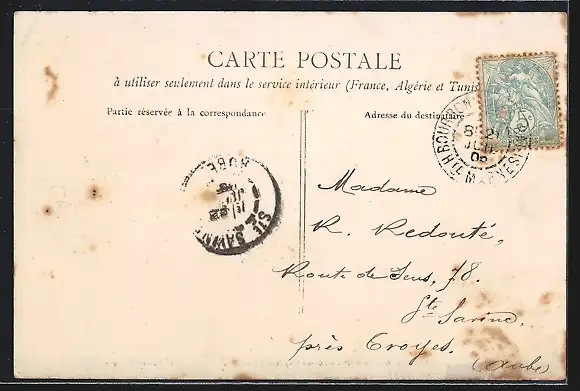 CARTE POSTALE
à utiliser seulement dans le service intérieur (France, Algérie et Tunis
Partie réservée à la correspondance
Adresse du destinataire
Madame
R. Redouté,
Route de Sens, 78.
Ste Savine,
près Troyes.
(Aube)
STE SAVINE
AUBE
BOURBON
HTE MARNE